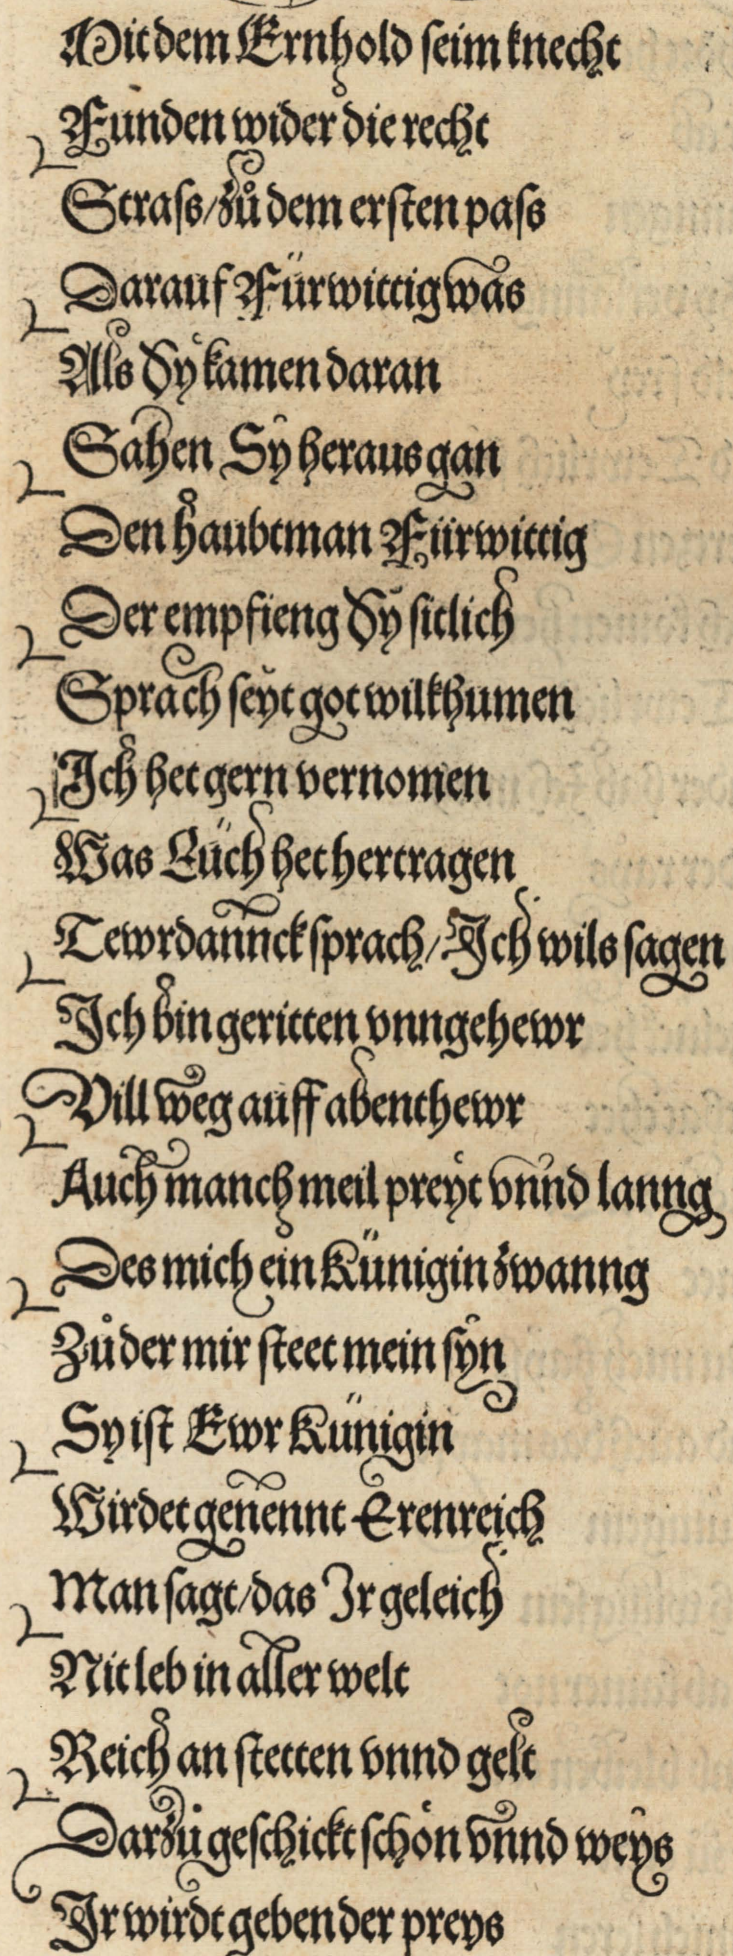 Mit dem Ernhold seim knecht
Funden wider die recht
Strass/zů dem ersten pass
Darauf Fürwittig was
Als Sy kamen daran
Sahen Sy heraus gan
Den haubtman Fürwittig
Der empfieng Sy sitlich
Sprach seyt got wilkhumen
Ich het gern vernomen
Was Eüch het hertragen
Tewrdannck sprach/Ich wils sagen
Ich bin geritten vnngehewr
Vill weg auff abenthewr
Auch manch meil preyt vnnd lanng
Des mich ein Künigin zwanng
Zů der mir steet mein syn
Sy ist Ewr Künigin
Wirdet genennt Erenreich
Man sagt/das Ir geleich
Nit leb in aller welt
Reich an stetten vnnd gelt
Darzů geschickt schön vnnd weys
Ir wirdt geben der preys